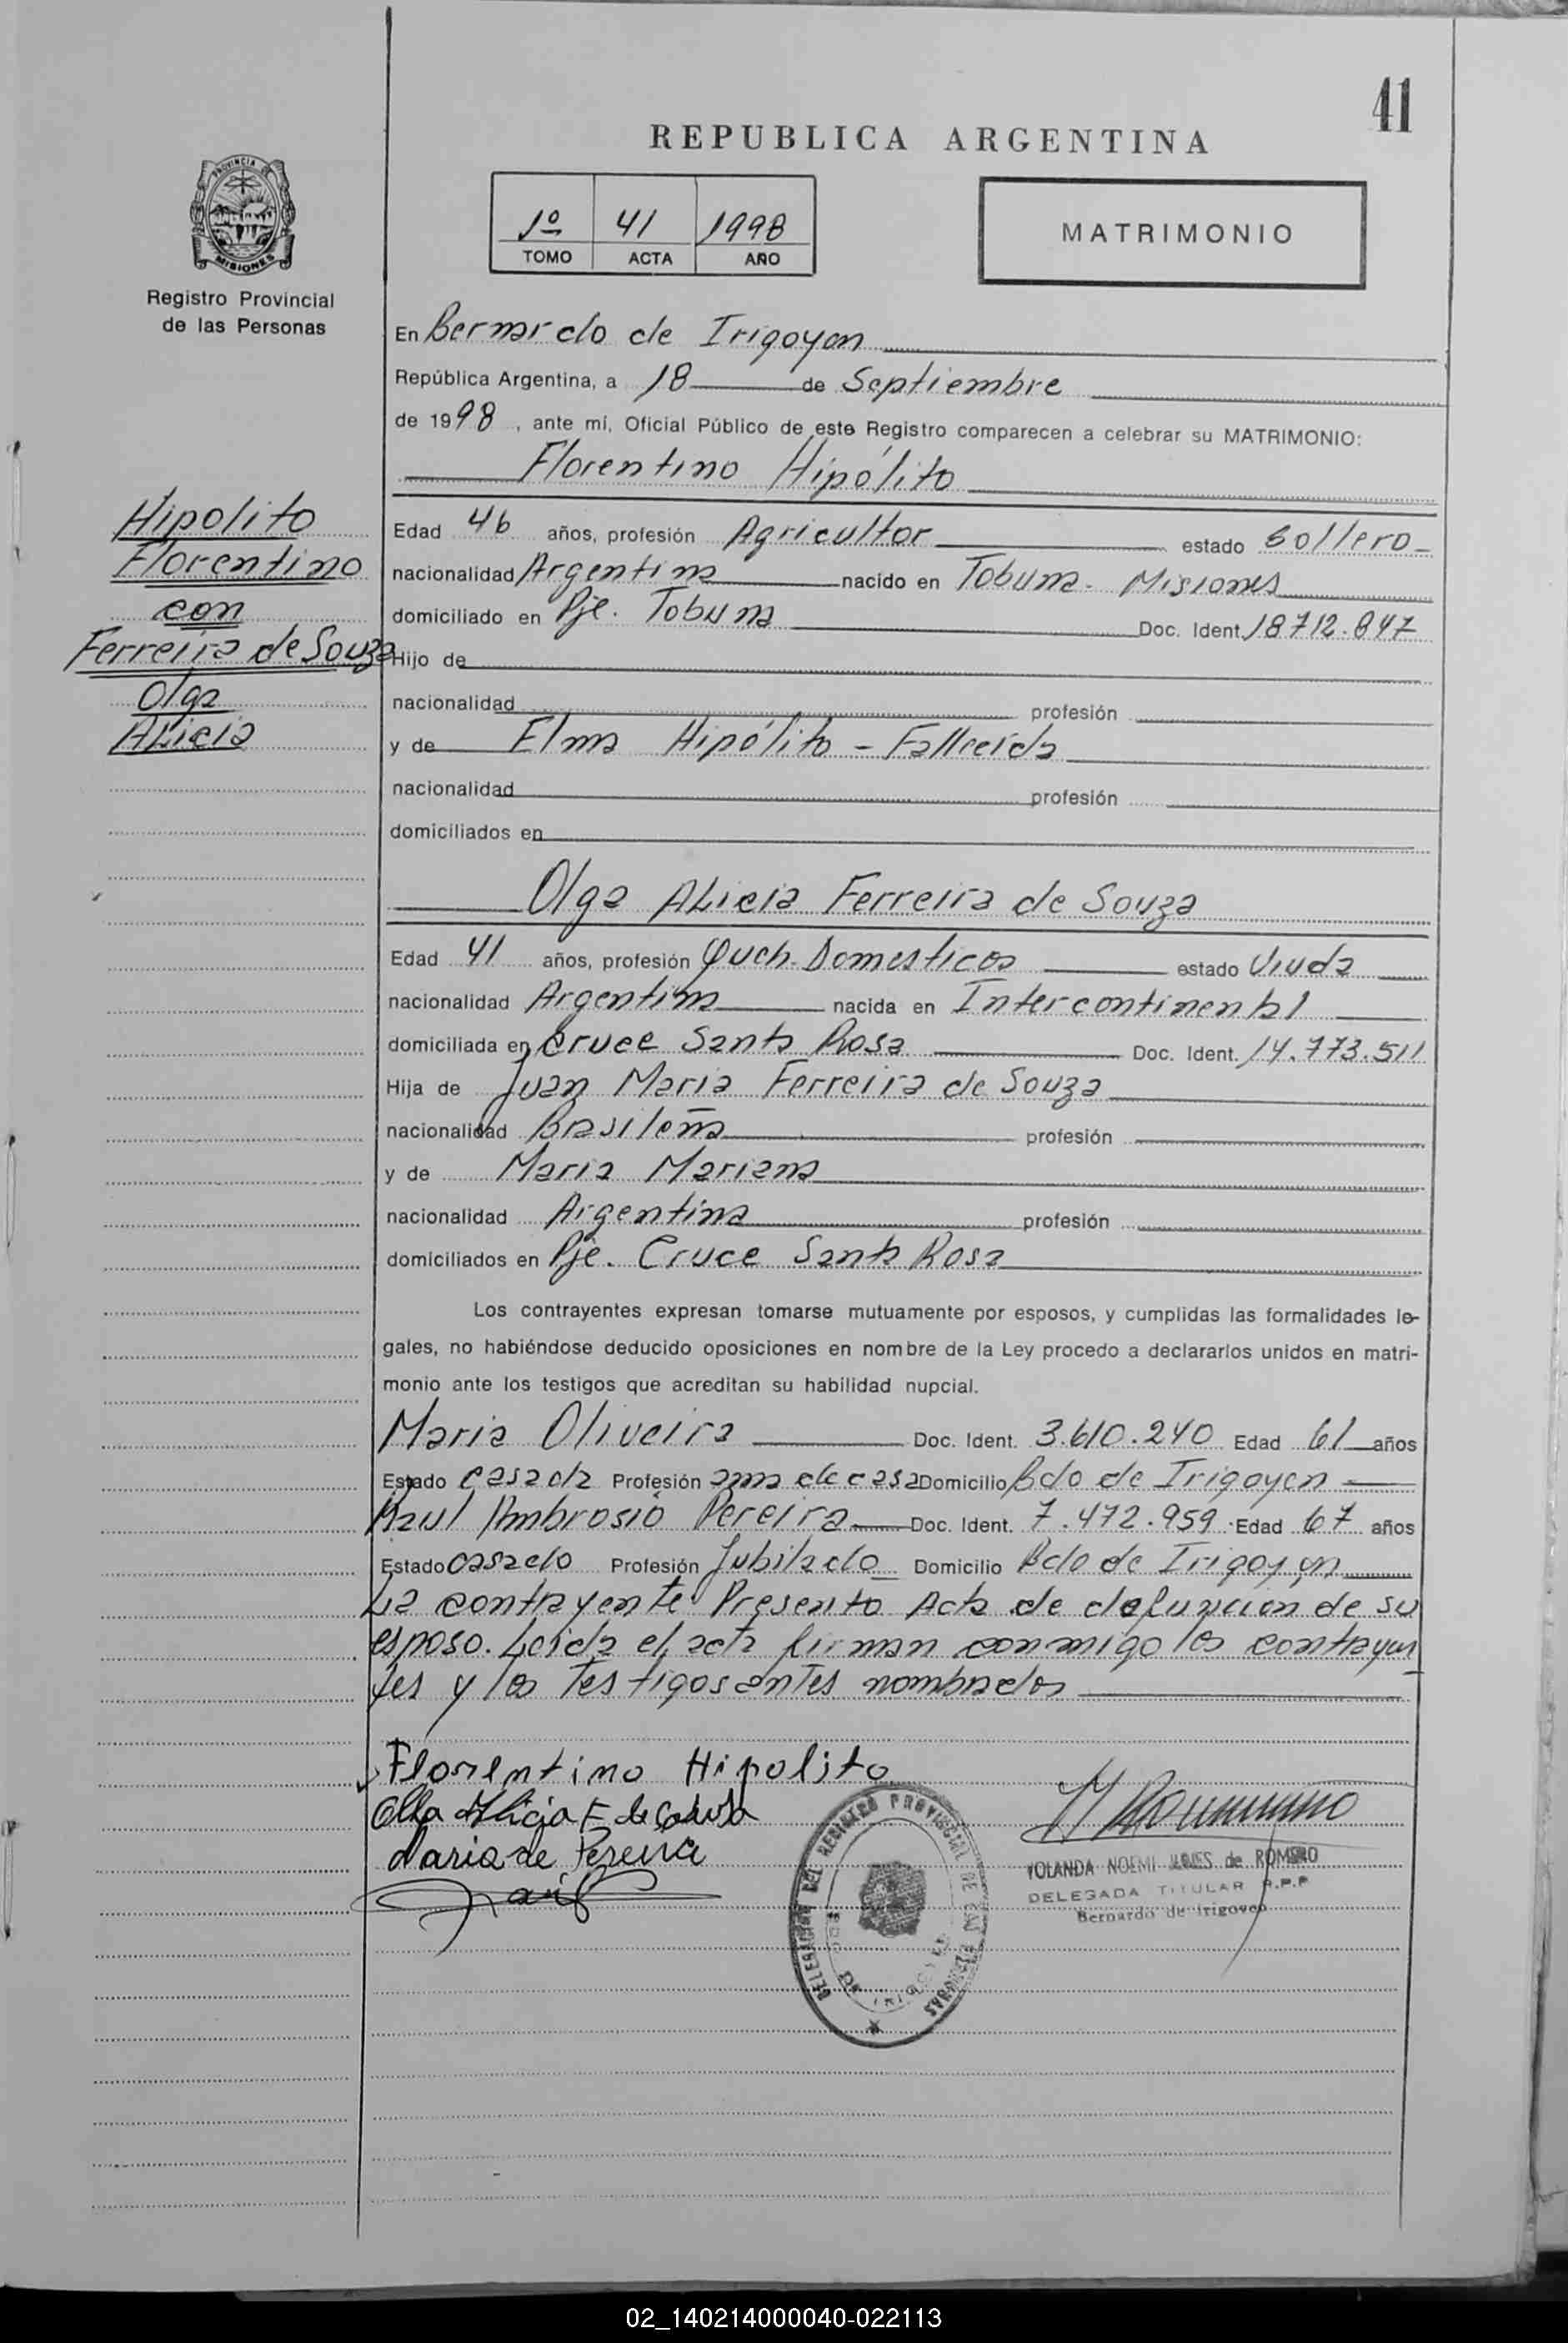 41
REPUBLICA ARGENTINA
PROVINCIA DE
MISIONES
Registro Provincial
de las Personas
1º 41 1998
TOMO ACTA AÑO
MATRIMONIO
En Bernardo de Irigoyen
República Argentina, a 18 de Septiembre
de 1998, ante mí, Oficial Público de este Registro comparecen a celebrar su MATRIMONIO:
Florentino Hipólito
Hipolito
Florentino
con
Ferreira de Souza
Olga
Alicia
Edad 46 años, profesión Agricultor estado Soltero
nacionalidad Argentina nacido en Tobuna - Misiones
domiciliado en Pje. Tobuna Doc. Ident. 18712.847
Hijo de
nacionalidad profesión
y de Elma Hipólito - Fallecida
nacionalidad profesión
domiciliados en
Olga Alicia Ferreira de Souza
Edad 41 años, profesión Queh. Domesticos estado Viuda
nacionalidad Argentina nacida en Intercontinental
domiciliada en Cruce Santa Rosa Doc. Ident. 14.773.511
Hija de Juan Maria Ferreira de Souza
nacionalidad Brasileña profesión
y de Maria Mariana
nacionalidad Argentina profesión
domiciliados en Pje. Cruce Santa Rosa
Los contrayentes expresan tomarse mutuamente por esposos, y cumplidas las formalidades le-
gales, no habiéndose deducido oposiciones en nombre de la Ley procedo a declararlos unidos en matri-
monio ante los testigos que acreditan su habilidad nupcial.
Maria Oliveira Doc. Ident. 3.610.240 Edad 61 años
Estado casada Profesión ama de casa Domicilio Bdo de Irigoyen
Raul Ambrosio Pereira Doc. Ident. 7.472.959 Edad 67 años
Estado casado Profesión Jubilado Domicilio Bdo de Irigoyen
La contrayente Presento Acta de defuncion de su
esposo. Leida el acta firman conmigo los contrayen
tes y los Testigos antes nombrados
Florentino Hipolito
Olga Alicia F de Souza
Maria de Pereira
DELEGACION DEL REGISTRO PROVINCIAL DE LAS PERSONAS
BDO. DE IRIGOYEN
YOLANDA NOEMI de ROMERO
DELEGADA TITULAR R.P.P
Bernardo de Irigoyen
02_140214000040-022113